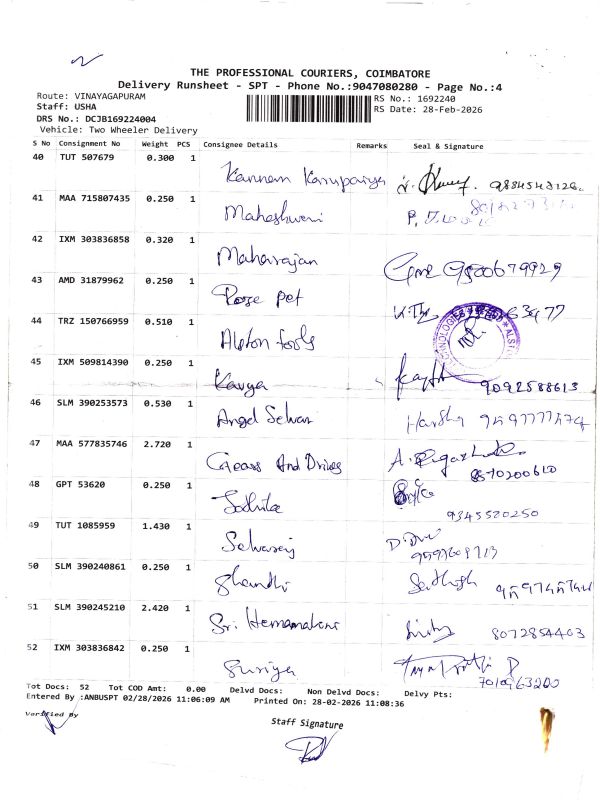 THE PROFESSIONAL COURIERS, COIMBATORE
Delivery Runsheet - SPT - Phone No.:9047080280 - Page No.:4
Route: VINAYAGAPURAM
RS No.: 1692240
Staff: USHA
RS Date: 28-Feb-2026
DRS No.: DCJB169224004
Vehicle: Two Wheeler Delivery
S No Consignment No Weight PCS Consignee Details Remarks Seal & Signature
40 TUT 507679 0.300 1
Kannan Karupaiya
41 MAA 715807435 0.250 1
Maheshwari
42 IXM 303836858 0.320 1
Maharajan 9500679929
43 AMD 31879962 0.250 1
Rose pet
44 TRZ 150766959 0.510 1
Alston tools
45 IXM 509814390 0.250 1
Kavya 9092588613
46 SLM 390253573 0.530 1
Angel Selvan Harsha
47 MAA 577835746 2.720 1
Gears And Drives 8570200610
48 GPT 53620 0.250 1
9345520250
49 TUT 1085959 1.430 1
Selvaraj
50 SLM 390240861 0.250 1
Shandhi Sathish
51 SLM 390245210 2.420 1
Sri. Hemamalini 8072854403
52 IXM 303836842 0.250 1
Suriya
Tot Docs: 52 Tot COD Amt: 0.00 Delvd Docs: Non Delvd Docs: Delvy Pts:
Entered By :ANBUSPT 02/28/2026 11:06:09 AM Printed On: 28-02-2026 11:08:36
Verified By
Staff Signature